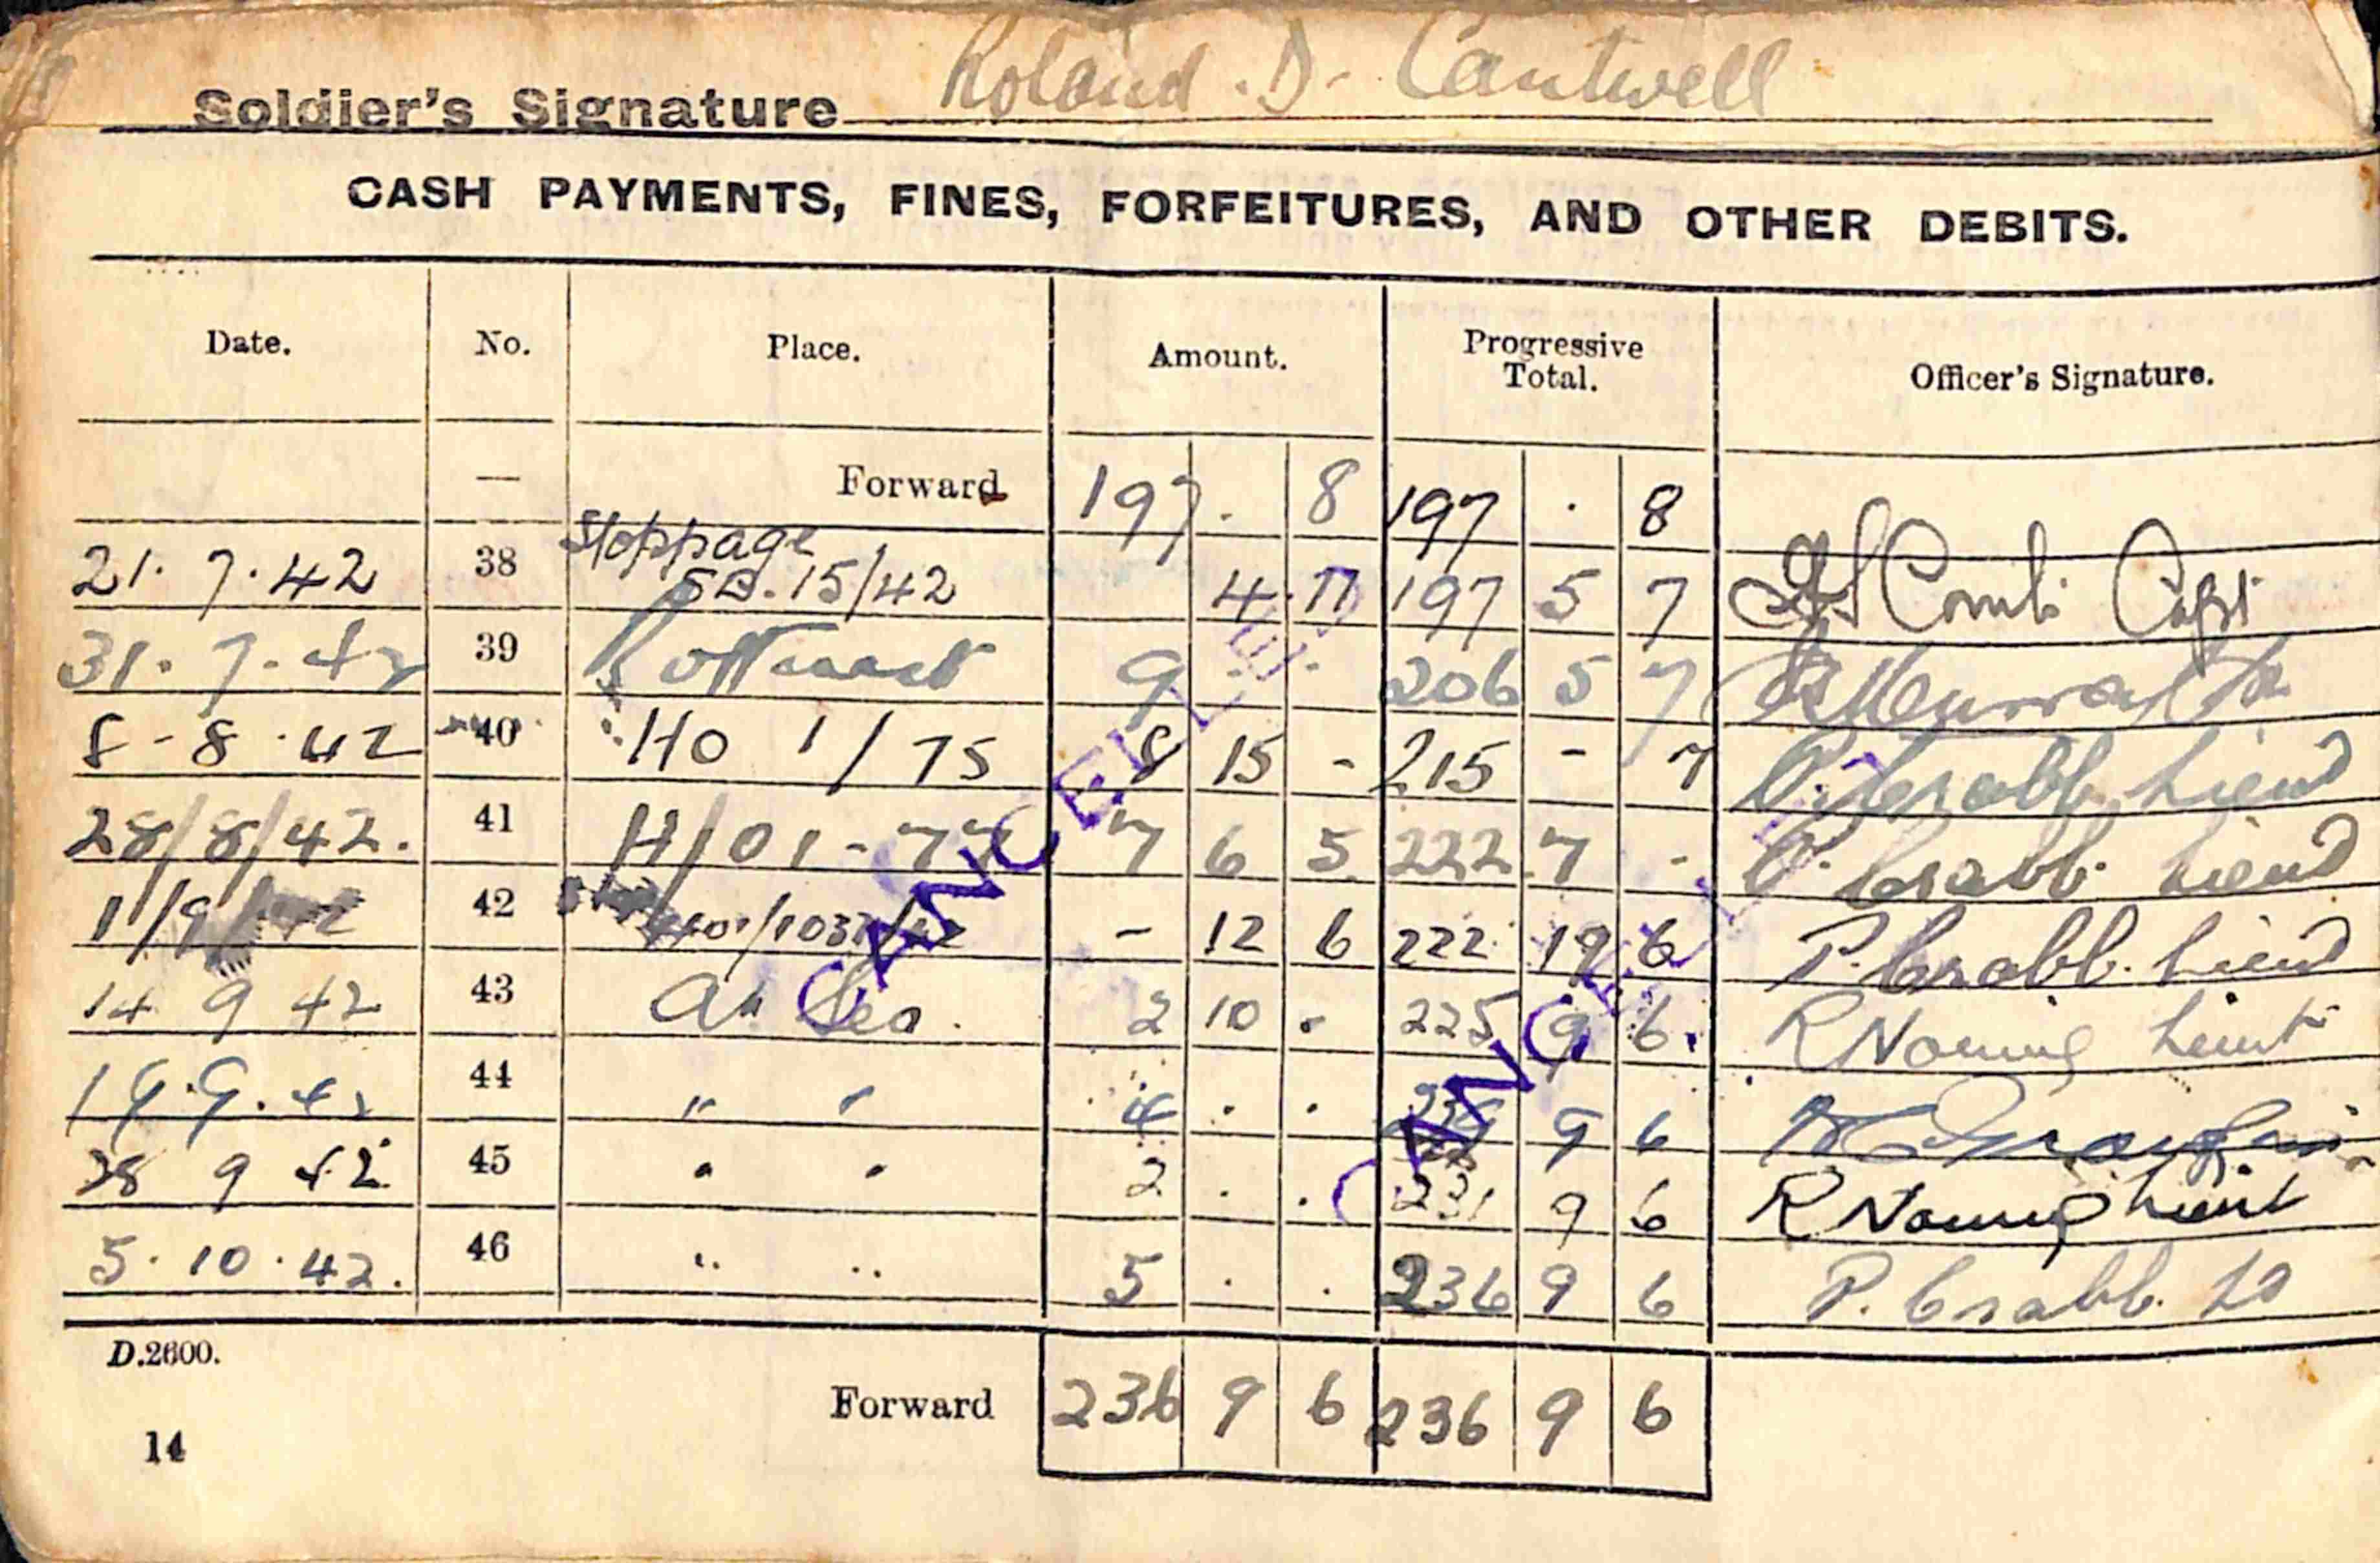 Soldier's Signature Roland . D. Cantwell
CASH PAYMENTS, FINES, FORFEITURES, AND OTHER DEBITS.
Date. No. Place. Amount. Progressive Total. Officer's Signature.
— Forward 197 . 8 197 . 8
21. 7. 42 38 Stoppage SB. 15/42 4 . 11 197 5 7 Capt
31. 7. 42 39 9 206 5 7
8 - 8 . 42 40 HO 1 / 75 8 15 - 215 - 7 P. Crabb. Lieut
28/8/42. 41 H/O 1 - 77 7 6 5 222 7 - P. Crabb. Lieut
1/9/42 42 - 12 6 222 19 6 P. Crabb. Lieut
14 9 42 43 At Sea . 2 10 . 225 9 6. R Lieut
19.9.42 44 " " 4 . . 229 9 6
28 9 42 45 " " 2 . . 231 9 6 R Lieut
5. 10 . 42. 46 " " 5 . . 236 9 6 P. Crabb. Lt
D.2600.
Forward 236 9 6 236 9 6
14
CANCELLED
CANCELLED